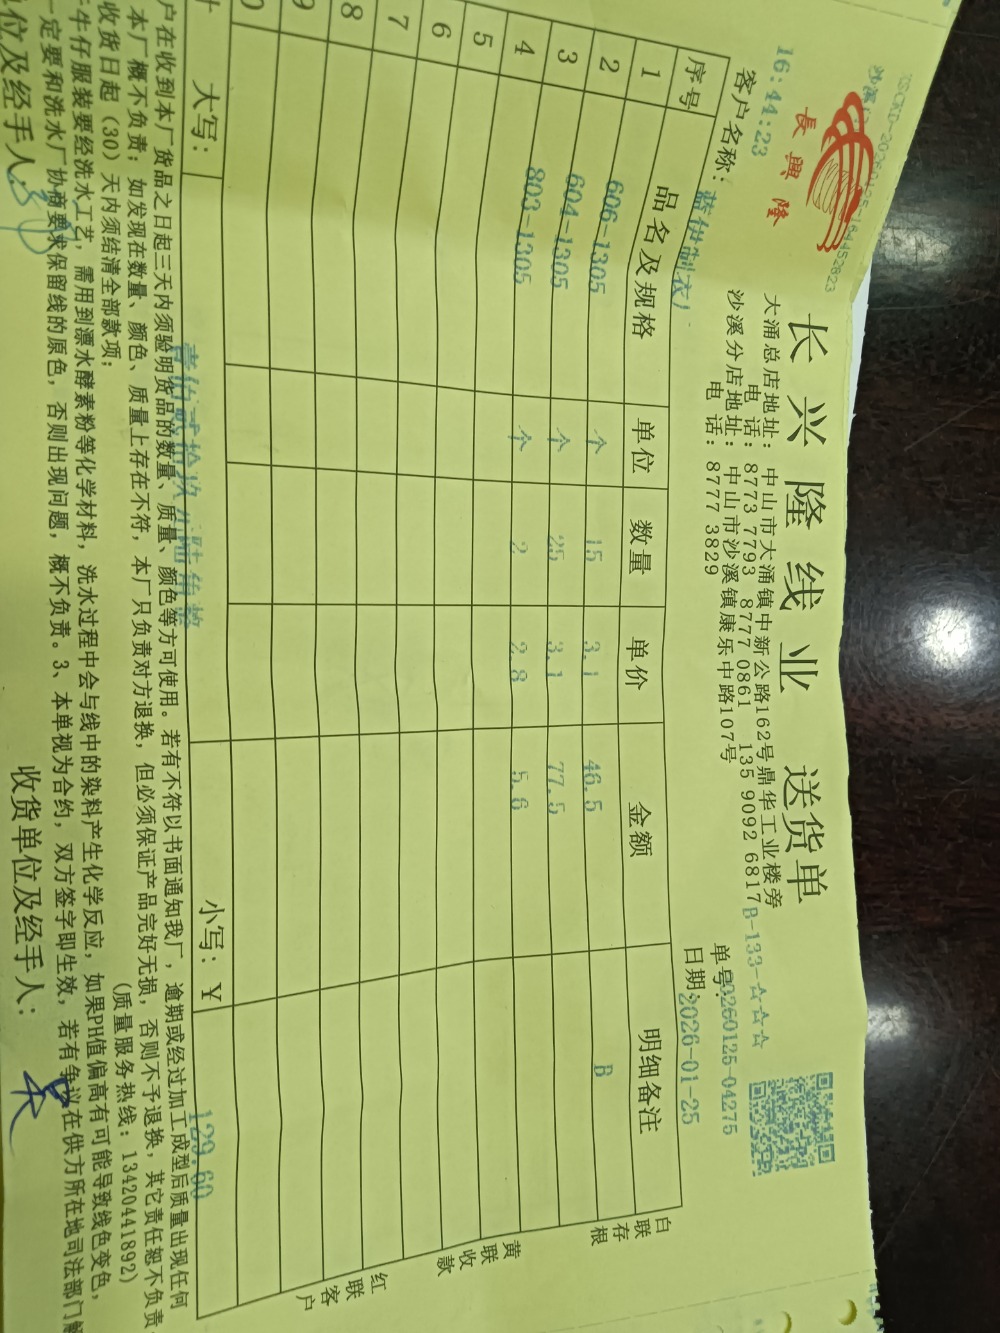 16:44:23
長興隆
长兴隆线业 送货单
大涌总店地址：中山市大涌镇中新公路162号鼎华工业楼旁
电 话：8773 7793 8777 0861 135 9092 6817
沙溪分店地址：中山市沙溪镇康乐中路107号
电 话：8777 3829
B-133-☆☆☆
单号：20260125-04275
客户名称：蓝伊制衣厂
日期：2026-01-25
序号 品名及规格 单位 数量 单价 金额 明细备注
1 606-1305 个 15 3.1 46.5 B
2 604-1305 个 25 3.1 77.5
3 803-1305 个 2 2.8 5.6
4
5
6
7
8
9
大写：壹佰贰拾玖元陆角整 小写：￥ 129.60
白联存根
黄联收款
红联客户
户在收到本厂货品之日起三天内须验明货品的数量、质量、颜色等方可使用。若有不符以书面通知我厂，逾期或经过加工成型后质量出现任何
本厂概不负责；如发现在数量、颜色、质量上存在不符，本厂只负责对方退换，但必须保证产品完好无损，否则不予退换，其它责任恕不负责。
收货日起（30）天内须结清全部款项； （质量服务热线：13420441892）
牛仔服装要经洗水工艺，需用到漂水酵素粉等化学材料，洗水过程中会与线中的染料产生化学反应，如果PH值偏高有可能导致线色变色，
一定要和洗水厂协商要求保留线的原色，否则出现问题，概不负责。3、本单视为合约，双方签字即生效，若有争议在供方所在地司法部门解
单位及经手人： 收货单位及经手人：